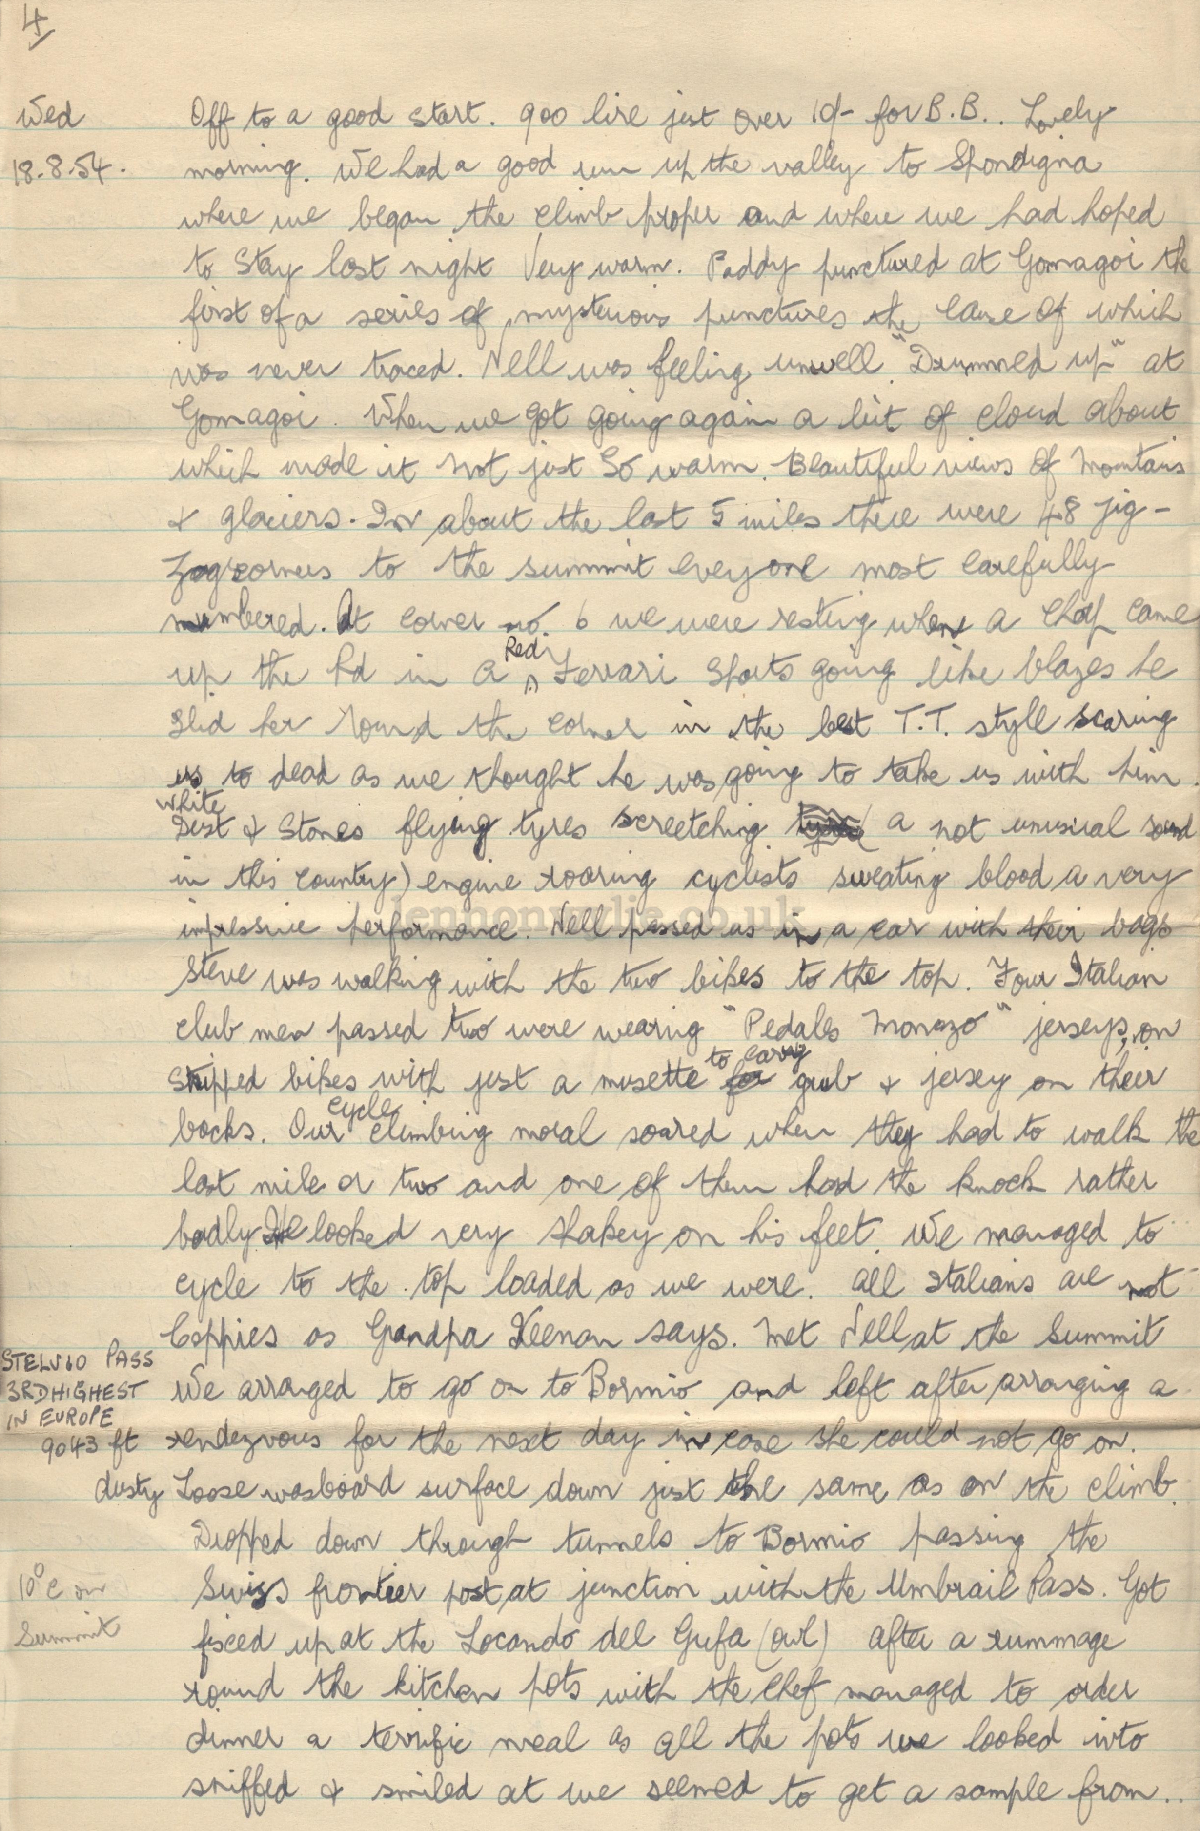 4
Wed Off to a good start. 900 lire just over 10/- for B.B.. Lovely
18.8.54. morning. We had a good run up the valley to Spondigna
where we began the climb proper and where we had hoped
to Stay last night Very warm. Paddy punctured at Gomagoi the
first of a series of mysterious punctures the cause of which
was never traced. Nell was feeling unwell "Drummed up" at
Gomagoi. When we got going again a bit of cloud about
which made it not just so warm. Beautiful views of Mountains
& glaciers. In about the last 5 miles there were 48 jig-
zag corners to the summit everyone most carefully
numbered. At corner no. 6 we were resting when a chap came
up the Rd in a Red Ferrari Sports going like blazes he
slid her round the corner in the best T.T. style scaring
us to dead as we thought he was going to take us with him.
white
Dust & Stones flying tyres screetching a not unusual sound
in this country) engine roaring cyclists sweating blood a very
lennonwylie.co.uk
impressive performance. Nell passed us in a car with their bags
Steve was walking with the two bikes to the top. Four Italian
club men passed two were wearing "Pedales Monozo" jerseys, on
stripped bikes with just a musette to carry grub & jersey on their
backs. Our cycle climbing moral soared when they had to walk the
last mile or two and one of them had the knock rather
badly He looked very shakey on his feet. We managed to
cycle to the top loaded as we were. All Italians are not
Coppies as Grandpa Keenan says. Met Nell at the Summit
STELVIO PASS
3RD HIGHEST
IN EUROPE
9043 ft
We arranged to go on to Bormio and left after arranging a
rendezvous for the next day in case she could not go on.
dusty Loose wasboard surface down just the same as on the climb.
Dropped down through tunnels to Bormio passing the
10°C on
Summit
Swiss frontier post at junction with the Umbrail Pass. Got
fixed up at the Locando del Gufa (owl) after a rummage
round the kitchen pots with the chef managed to order
dinner a terrific meal as all the pots we looked into
sniffed & smiled at we seemed to get a sample from..